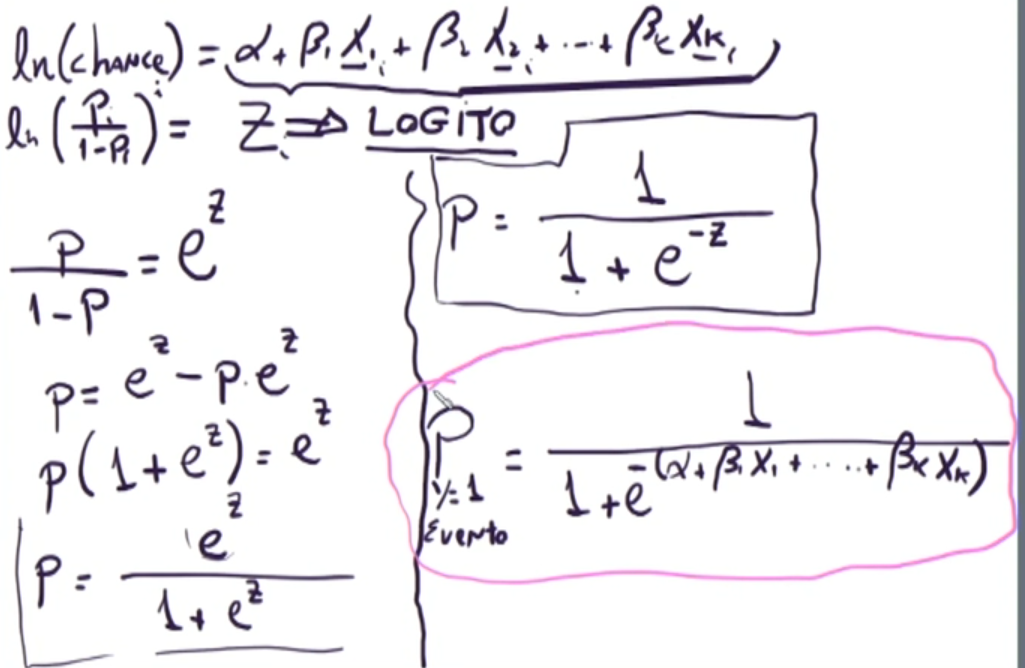 ln(chance)ᵢ = α + β₁ X₁ᵢ + β₂ X₂ᵢ + ... + βₖ Xₖᵢ
ln(Pᵢ/(1-Pᵢ)) = Zᵢ ⇒ LOGITO
P/(1-P) = e^z
p = e^z - p.e^z
p(1 + e^z) = e^z
P = e^z/(1 + e^z)
P = 1/(1 + e^-z)
P = 1/(1 + e^-(α + β₁ X₁ + ..... + βₖ Xₖ))
Y=1
Evento